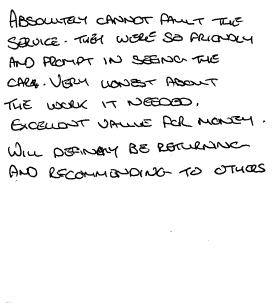 ABSOLUTELY CANNOT FAULT THE
SERVICE. THEY WERE SO FRIENDLY
AND PROMPT IN SEEING THE
CAR. VERY HONEST ABOUT
THE WORK IT NEEDED.
EXCELLENT VALUE FOR MONEY.
WILL DEFINITELY BE RETURNING
AND RECOMMENDING TO OTHERS